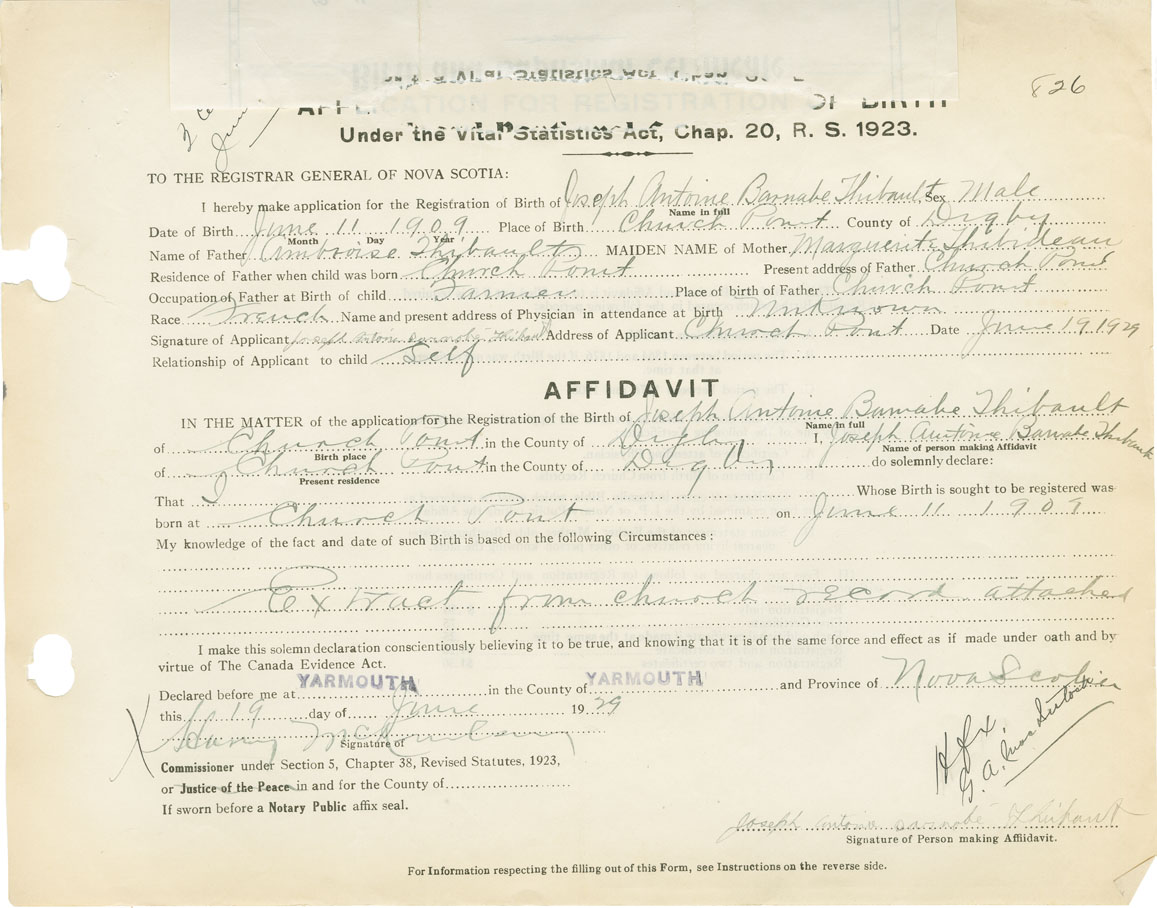 826
OF BIRTH
Under the Vital Statistics Act, Chap. 20, R. S. 1923.
TO THE REGISTRAR GENERAL OF NOVA SCOTIA:
I hereby make application for the Registration of Birth of Joseph Antoine Barnabe Thibault Sex Male
Name in full
Date of Birth June 11 1909 Place of Birth Church Point County of Digby
Month Day Year
Name of Father Ambroise Thibault MAIDEN NAME of Mother Marguerite Thibideau
Residence of Father when child was born Church Point Present address of Father Church Point
Occupation of Father at Birth of child Farmer Place of birth of Father Church Point
Race French Name and present address of Physician in attendance at birth Unknown
Signature of Applicant Joseph Antoine Barnabe Thibault Address of Applicant Church Point Date June 19 1929
Relationship of Applicant to child Self
AFFIDAVIT
IN THE MATTER of the application for the Registration of the Birth of Joseph Antoine Barnabe Thibault
Name in full
of Church Point in the County of Digby I, Joseph Antoine Barnabe Thibault
Birth place Name of person making Affidavit
of Church Point in the County of Digby do solemnly declare:
Present residence
That I Whose Birth is sought to be registered was
born at Church Point on June 11 1909
My knowledge of the fact and date of such Birth is based on the following Circumstances:
Extract from church record attached
I make this solemn declaration conscientiously believing it to be true, and knowing that it is of the same force and effect as if made under oath and by
virtue of The Canada Evidence Act.
Declared before me at YARMOUTH in the County of YARMOUTH and Province of Nova Scotia
this 19 day of June 1929
Harry
Signature of
Commissioner under Section 5, Chapter 38, Revised Statutes, 1923,
or Justice of the Peace in and for the County of
If sworn before a Notary Public affix seal.
Hfx.
Joseph Antoine Barnabe Thibault
Signature of Person making Affiidavit.
For Information respecting the filling out of this Form, see Instructions on the reverse side.